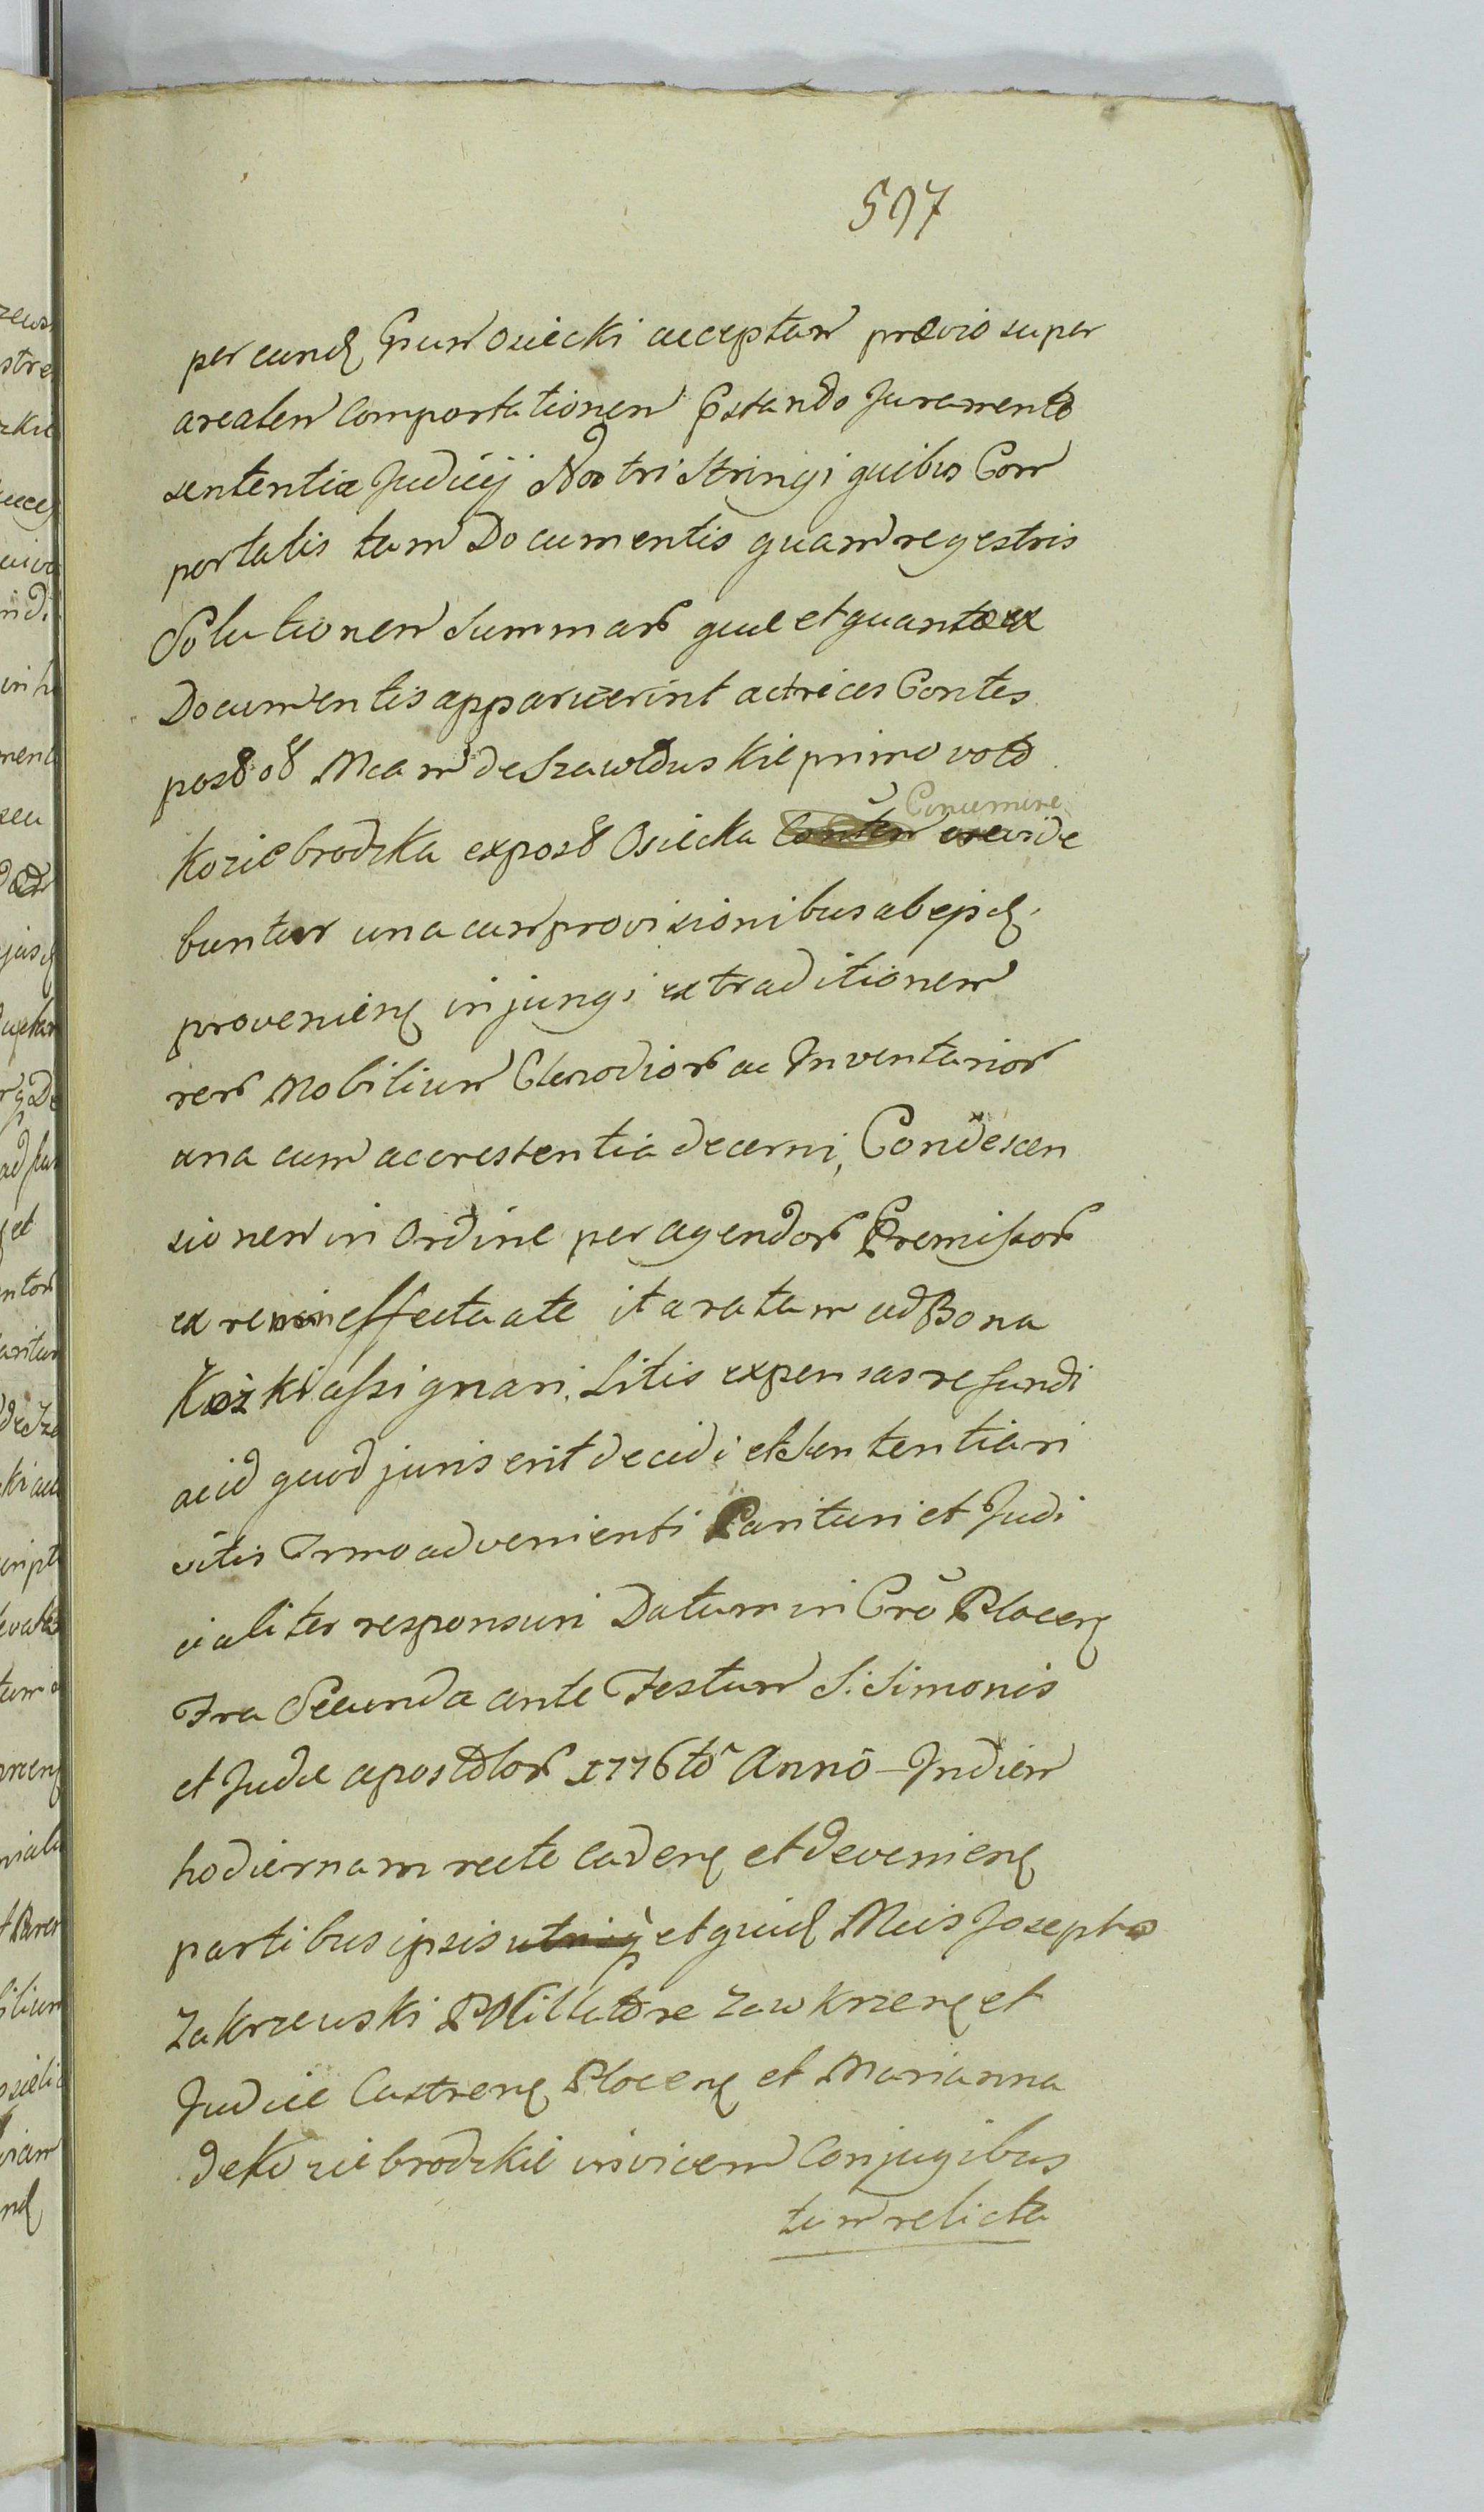 597
per eund Gsum Osiecki acceptarum prævio super
arealem Comportationem pstando Juramento
sententia Judicij Nostri Stringi quibus Com
portatis tam Documentis quam regestris
Solutionem Summar quæ et quantæ ex
Documentis apparuerint actrices Contes
Mcam de Szawłowskie primo voto
Koziebrodzka Osiecka Concernere vide
buntur una cum provisionibus ab ejsd
provenien injungi extraditionem
rer Mobilium Clenodior ac Inventarior
una cum accrestentia decerni, Condescen
sionem in Ordine peragendor Premissor
ex re effectuate itaratam ad Bona
Kozki assignari. Litis expensas refundi
ac id quod juris erit decidi et Sententiari
citis Trmo advenienti Parituri et Judi
cialiter responsuri Datum in Cro Plocen
Fra Secunda ante Festum S. Simonis
et Judæ apostolor 1776to Anno – In diem
hodiernam recte caden et devenien
partibus ipsis utrisq et quid Mcis Josepho
Zakrzewski Zawkrzen et
Judice Castren Plocen et Marianna
de Koziebrodzkie invicem Conjugibus
tum relicta